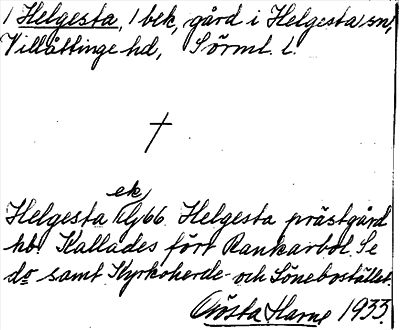 1 Helgesta, 1 bek, gård i Helgesta sn,
Villåttinge hd, Sörml. l.
†
ek
Helgesta Klj 66. Helgesta prästgård
hb. Kallades förr Rankarbol. Se
do samt Kyrkoherde- och Lönebostället.
Gösta Harne 1933.